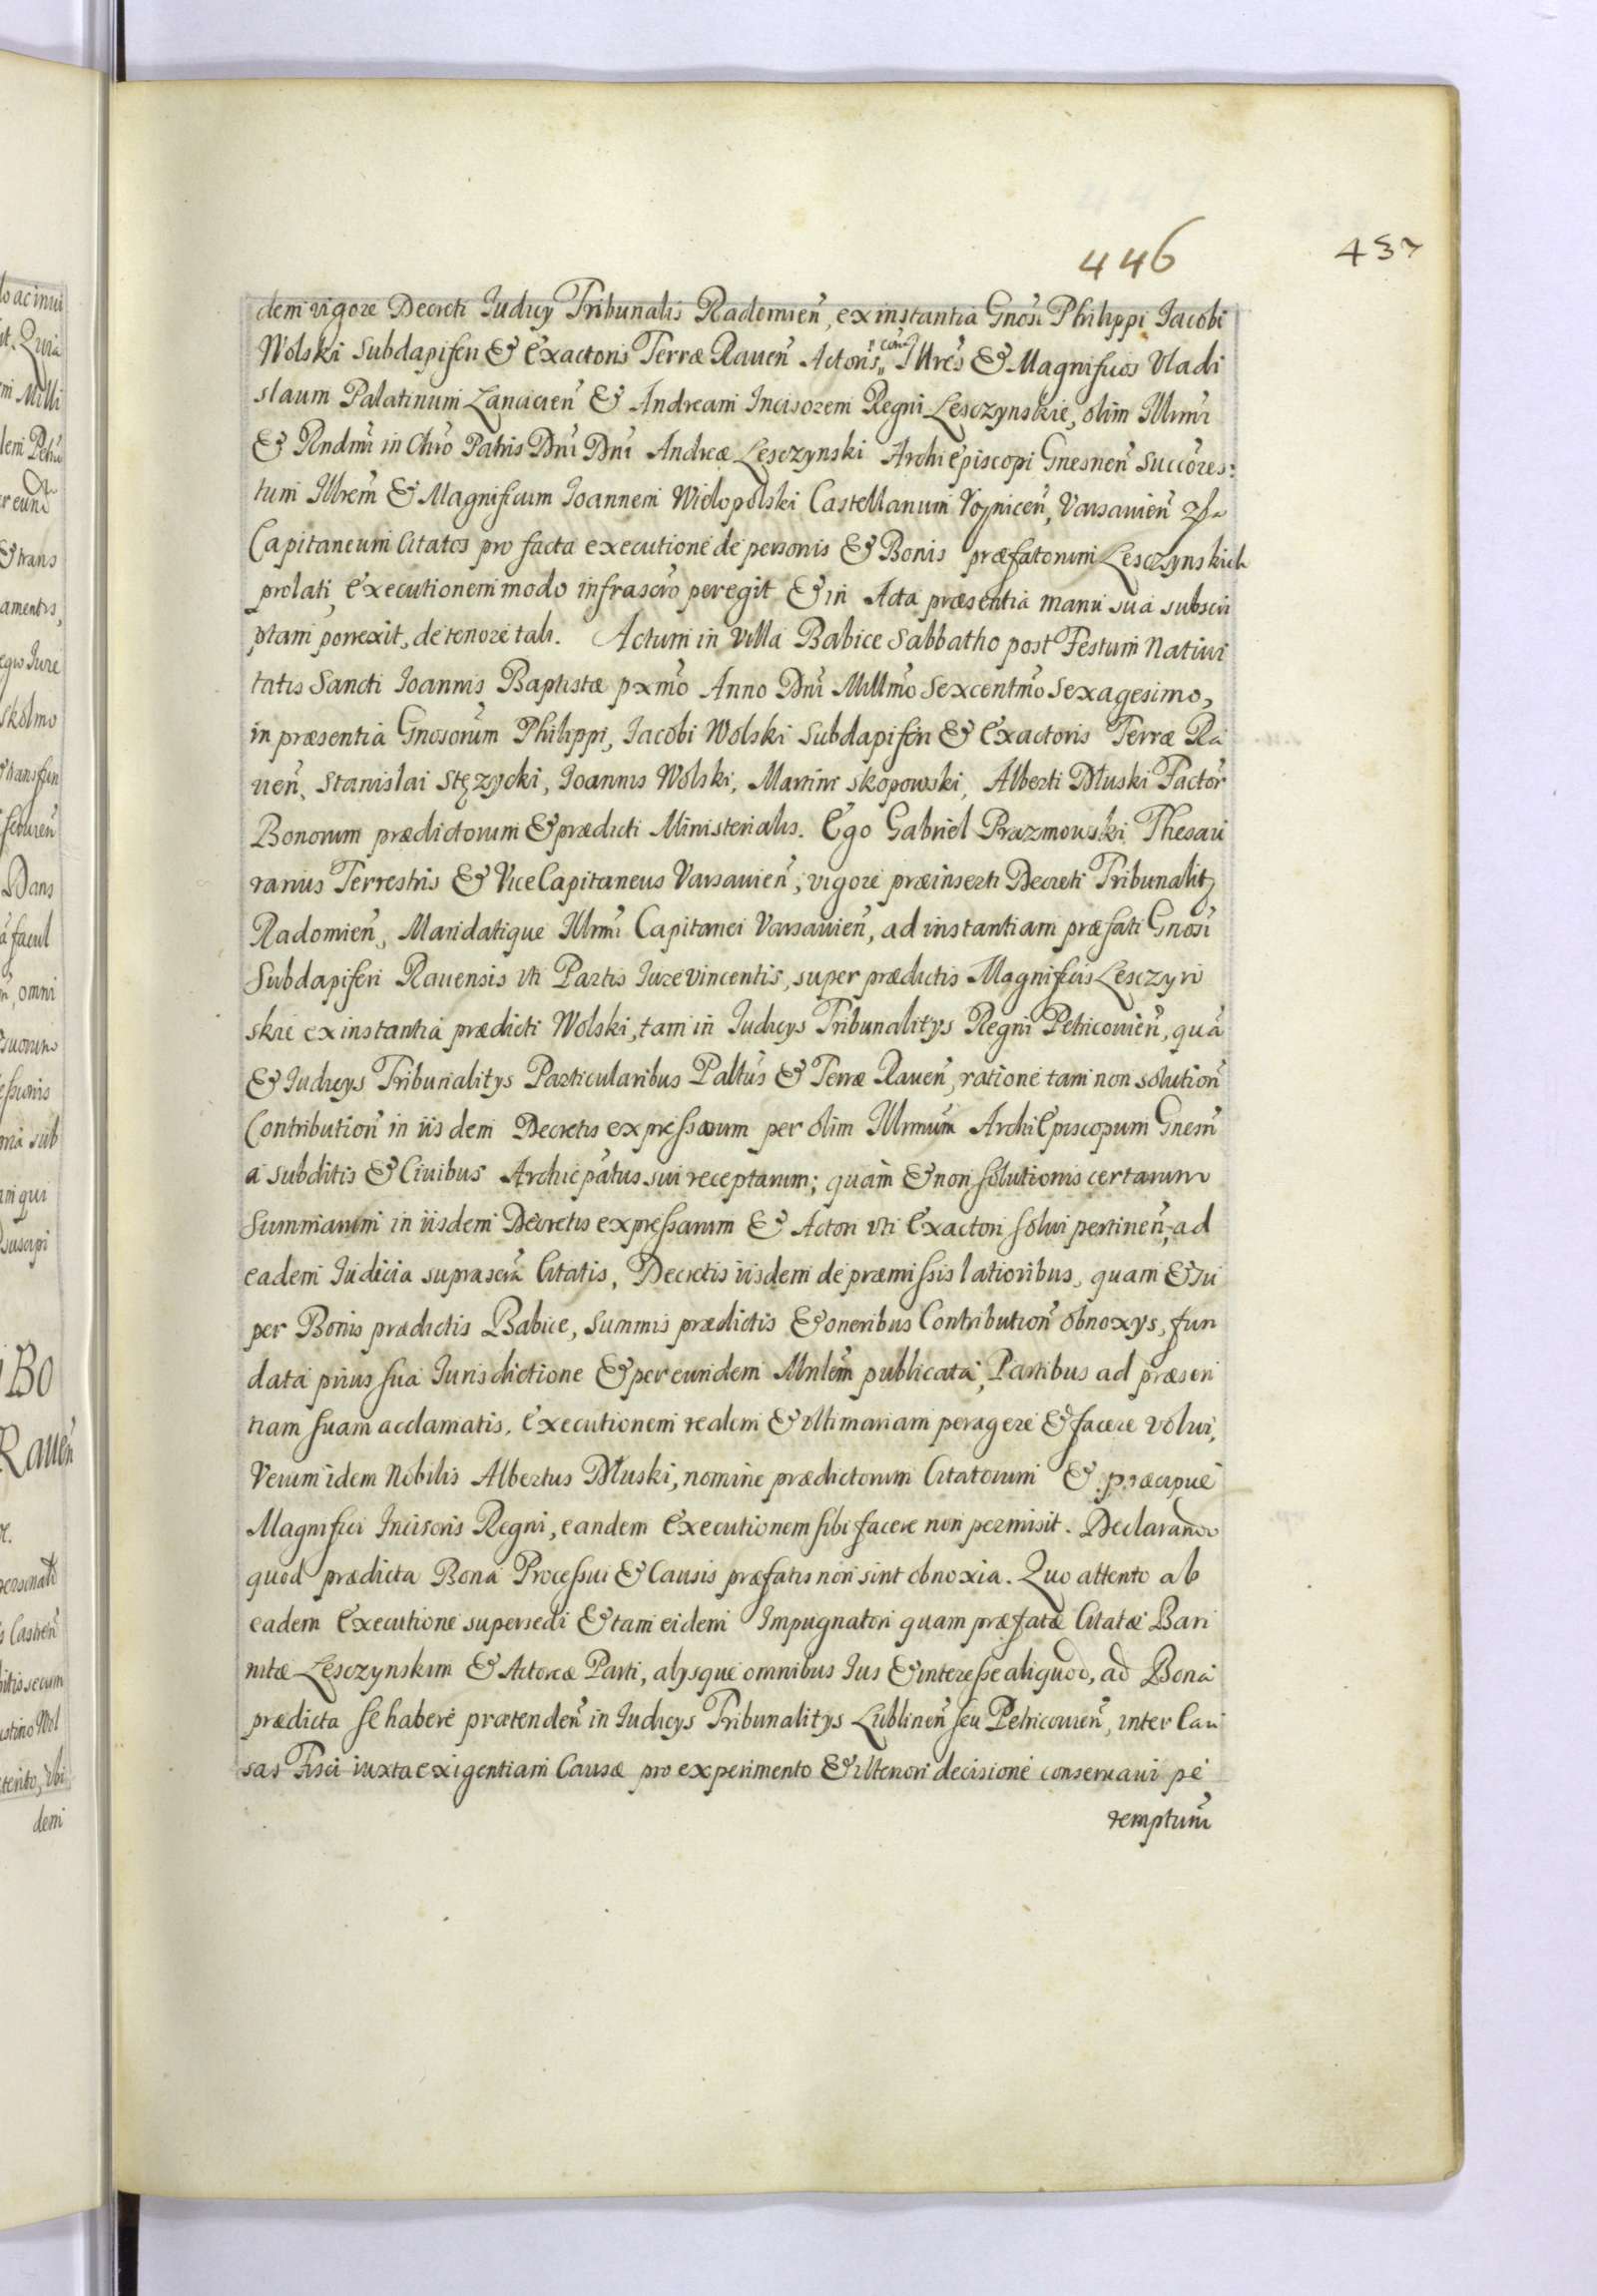 446
437
dem vigore Decreti Judicÿ Tribunalis Radomien̄, ex instantia Gnosi Philippi Jacobi
Wolski Subdapiferi & Exactoris Terræ Rauen̄ Actoris, con̄ Illres & Magnificos Vladi
slaum Palatinum Lancicien̄ & Andream Incisorem Regni Lesczynskie, olim Illrmi
& Rndmi in Chro Patris Dni Dni Andreæ Lesczynski Archi Episcopi Gnesnen̄ Succores:
tum Illrem & Magnificum Joannem Wielopolski Castellanum Voÿnicen̄, Varsauien̄
Capitaneum Citatos pro facta executione de personis & Bonis præfatorum Lesczynskich
prolati, Executionem modo infrascro peregit & in Acta præsentia manu sua subscri
ptam porrexit, de tenore tali. Actum in Villa Babice Sabbatho post Festum Natiui
tatis Sancti Joannis Baptistæ pxmo Anno Dni Millmo Sexcentmo Sexagesimo,
in præsentia Gnosorum Philippi, Jacobi Wolski Subdapiferi & Exactoris Terræ Ra
uen̄, Stanislai Stęzycki, Joannis Wolski, Martini Skopowski, Alberti Dłuski Factor̄
Bonorum prædictorum & prædicti Ministerialis. Ego Gabriel Prazmowski Thesau
rarius Terrestris & ViceCapitaneus Varsauien̄, vigore præinserti Decreti Tribunalit
Radomien̄, Mandatique Illrmi Capitanei Varsauien̄, ad instantiam præfati Gnosi
Subdapiferi Rauensis vti Partis Iure vincentis, super prædictis Magnificis Lesczyn
skie ex instantia prædicti Wolski, tam in Judicÿs Tribunalitÿs Regni Petricouien̄, quā
& Judicÿs Tribunalitÿs Particularibus Paltus & Terræ Rauen̄, ratione tam non solution̄
Contribution̄ in iisdem Decretis expressarum per olim Illrmum Archi Episcopum Gnesn̄
a subditis & Ciuibus Archiepatus sui receptarum; quam & non solutionis certarum
Summarum in iisdem Decretis expressarum & Actori vti Exactori solui pertinen̄, ad
eadem Iudicia suprascra Citatis, Decretis iisdem de præmissis latioribus, quam & su
per Bonis prædictis Babice, Summis prædictis & oneribus Contribution̄ obnoxÿs, fun
data prius sua Iurisdictione & per eundem Mnlem publicata, Partibus ad præsen
tiam suam acclamatis, Executionem realem & vltimariam peragere & facere volui,
Verum idem Nobilis Albertus Dłuski, nomine prædictorum Citatorum & præcipue
Magnifici Incisoris Regni, eandem Executionem sibi facere non permisit. Declarando
quod prædicta Bona Processui & Causis præfatis non sint obnoxia. Quo attento ab
eadem Executione supersedi & tam eidem Impugnatori quam præfatæ Citatæ Parti
nitæ Lesczynskim & Actoreæ Parti, alÿsque omnibus Ius & interesse aliquod, ad Bona
prædicta se habere prætenden̄ in Judicÿs Tribunalitÿs Lublinen̄ seu Petricouien̄, inter Cau
sas Fisci iuxta exigentiam Causæ pro experimento & vlteriori decisione conseruaui pe
remptum̄